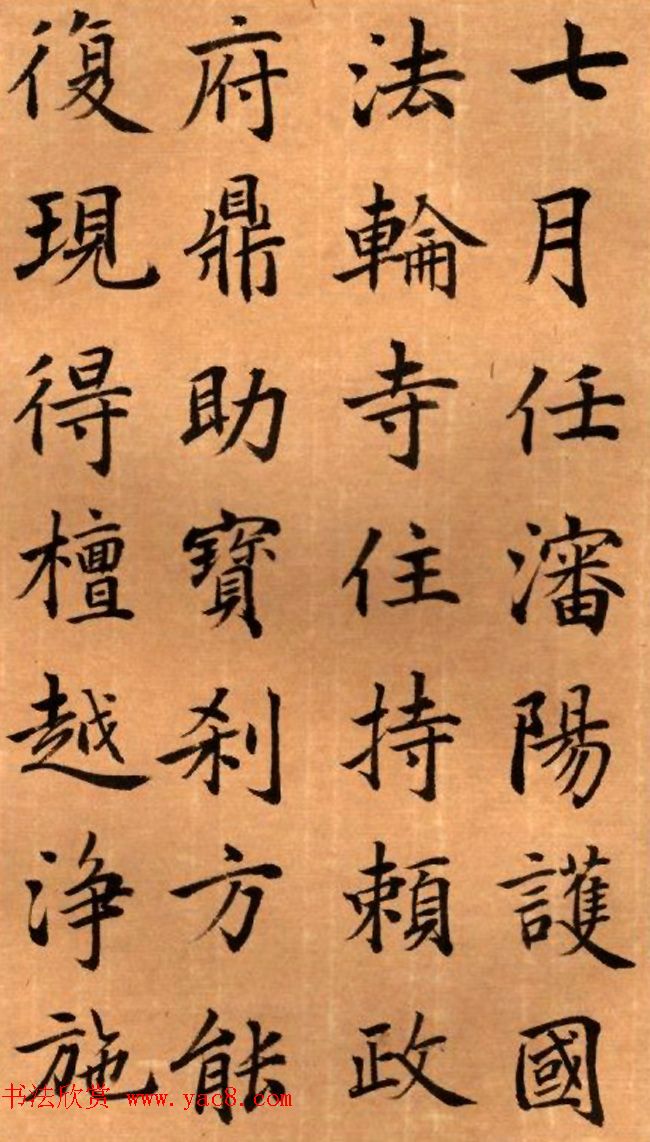 七月任瀋陽護國
法輪寺住持賴政
府鼎助寶刹方能
復現得檀越淨施
书法欣赏 www.yac8.com